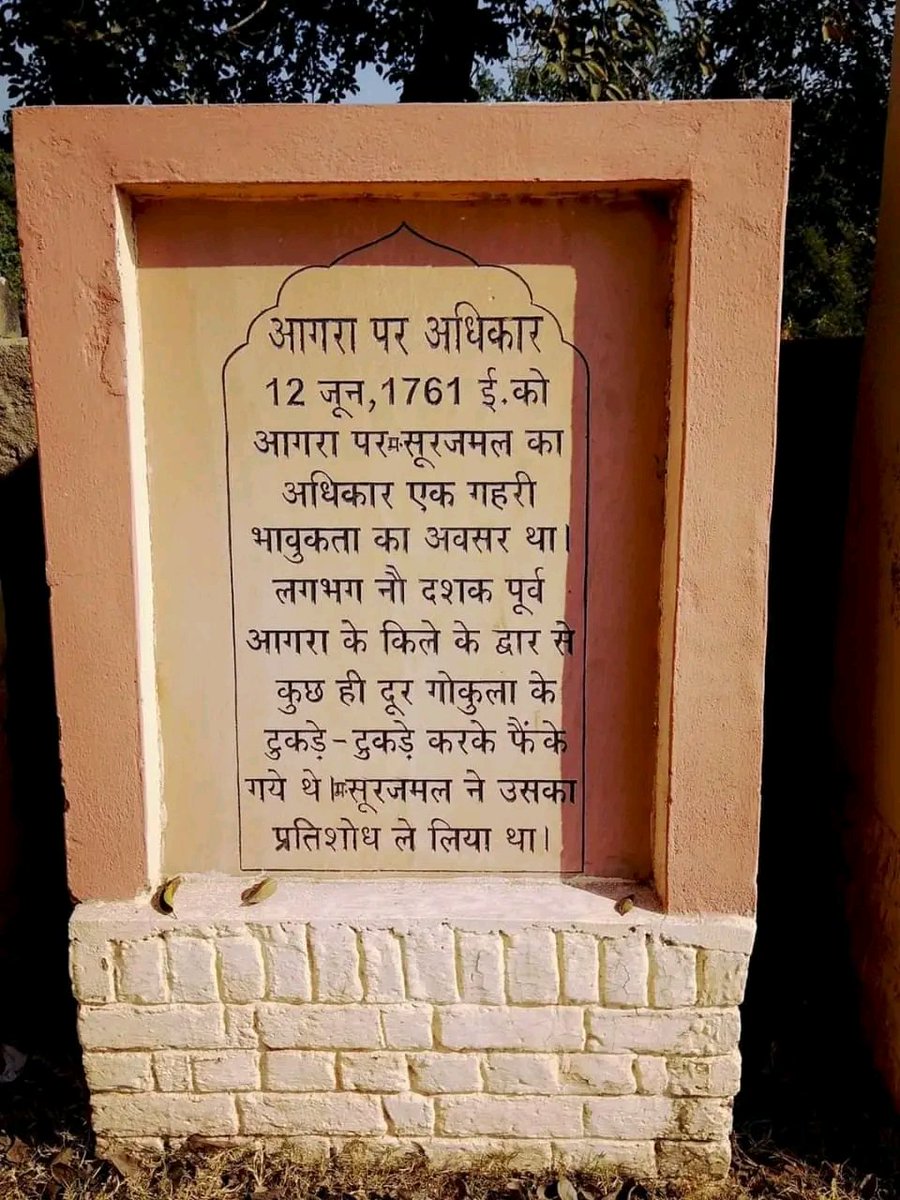 आगरा पर अधिकार
12 जून,1761 ई.को
आगरा पर म. सूरजमल का
अधिकार एक गहरी
भावुकता का अवसर था।
लगभग नौ दशक पूर्व
आगरा के किले के द्वार से
कुछ ही दूर गोकुला के
टुकड़े-टुकड़े करके फैंके
गये थे। म. सूरजमल ने उसका
प्रतिशोध ले लिया था।